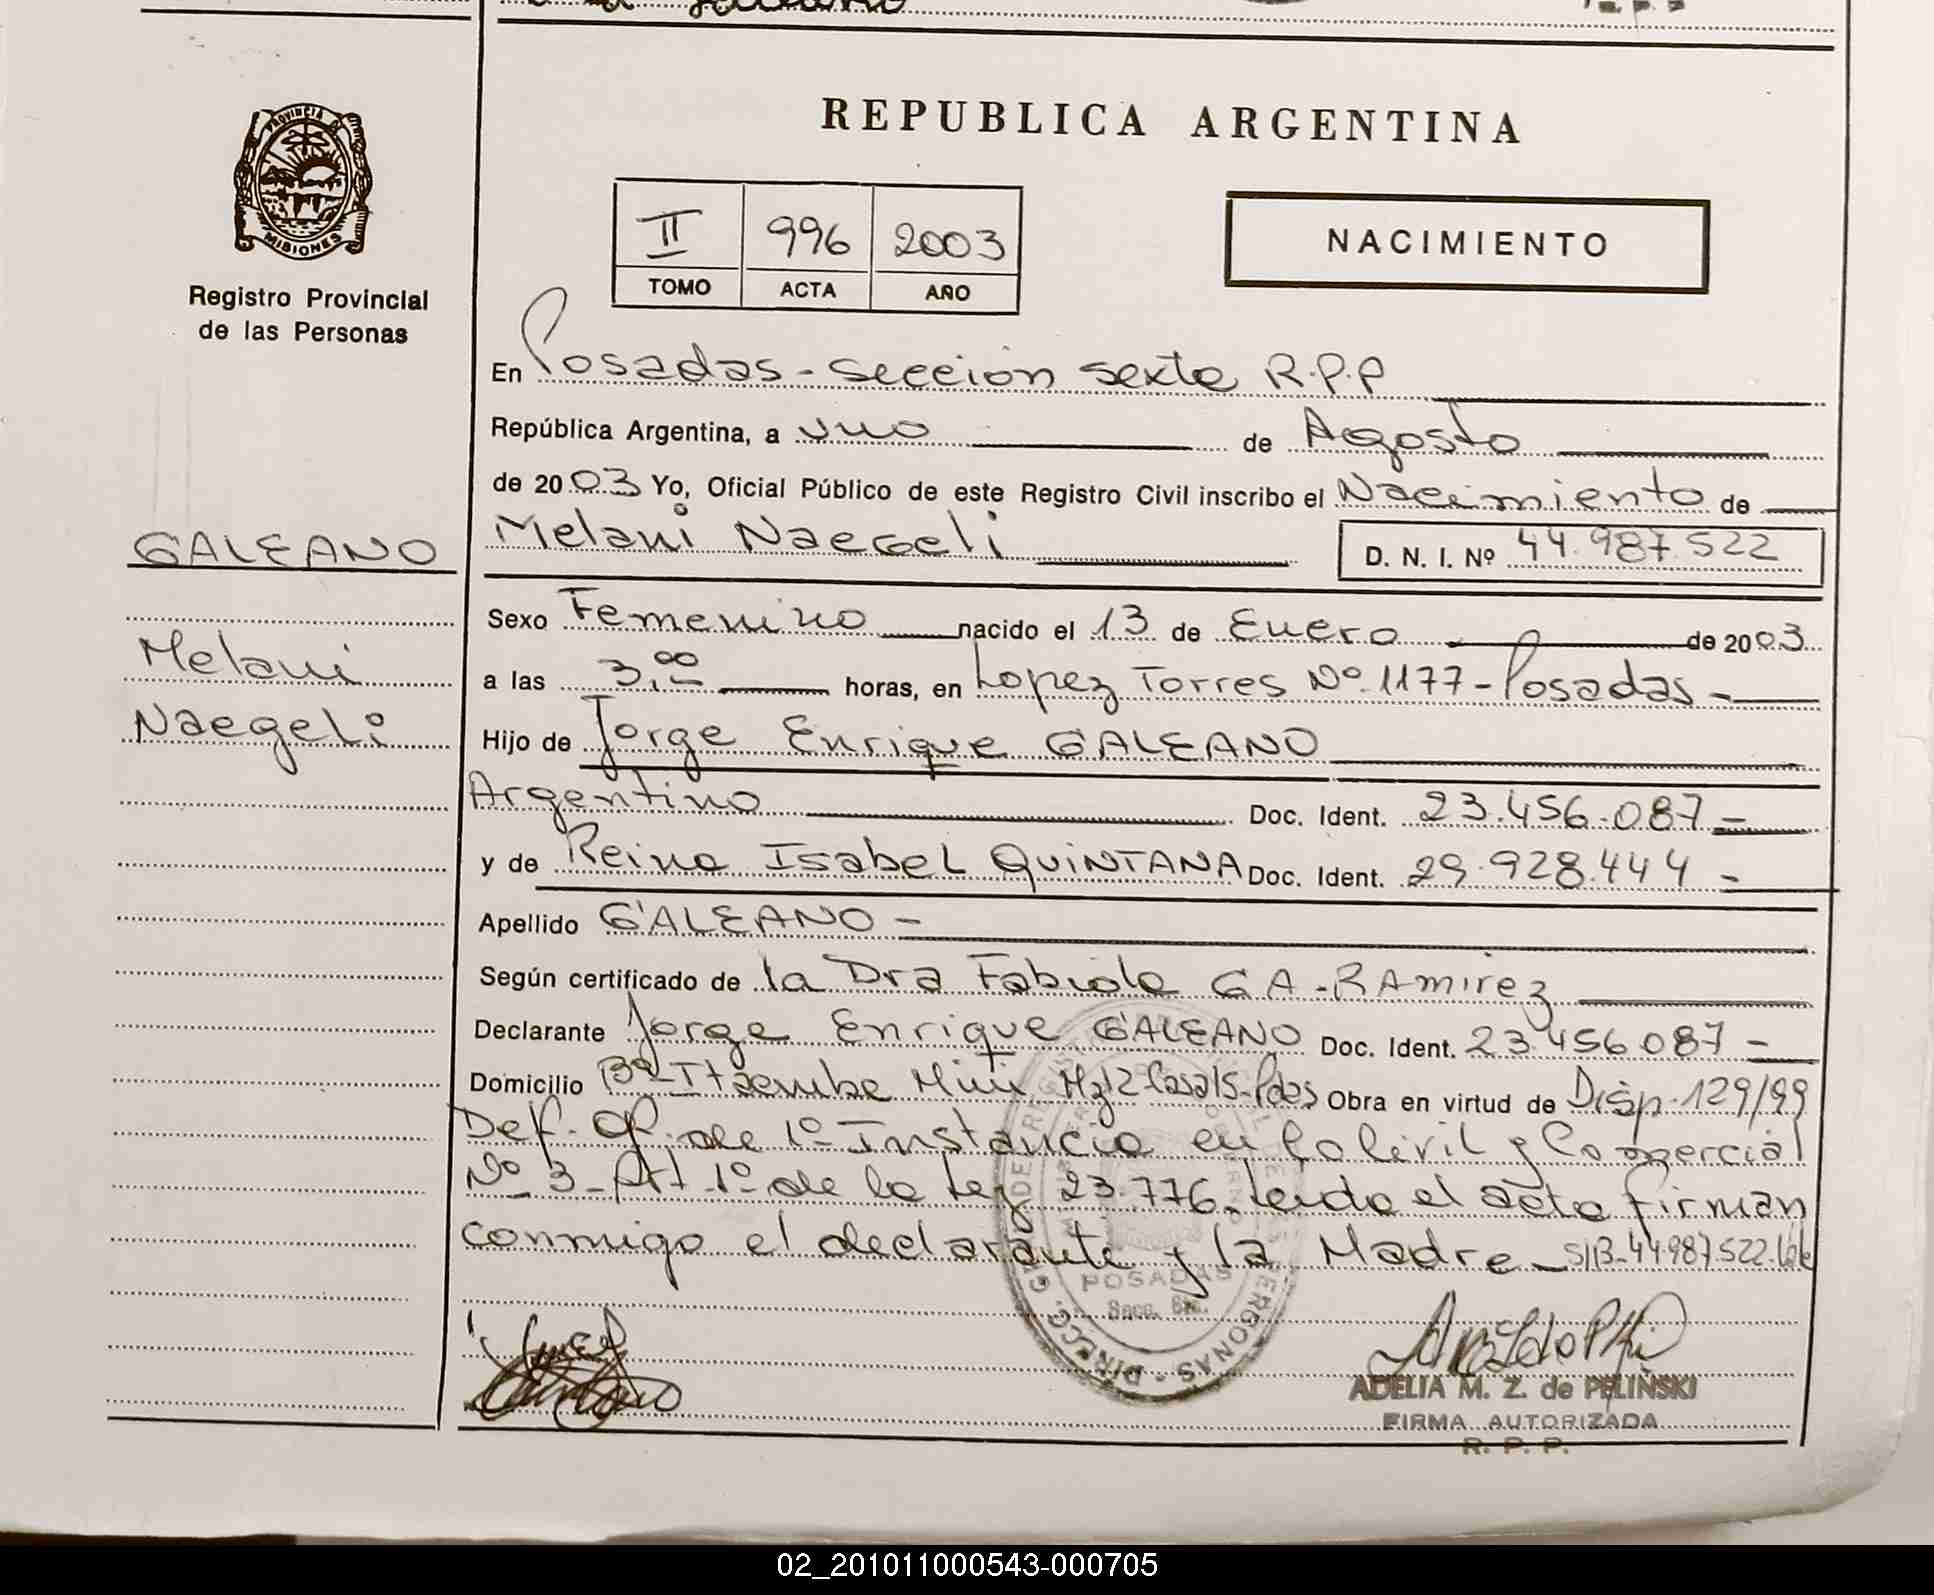 REPUBLICA ARGENTINA
PROVINCIA DE
MISIONES
Registro Provincial
de las Personas
II 996 2003
TOMO ACTA AÑO
NACIMIENTO
En Posadas - sección sexta R.P.P
República Argentina, a uno de Agosto
de 2003 Yo, Oficial Público de este Registro Civil inscribo el Nacimiento de
GALEANO
Melani Naegeli
D. N. I. Nº 44.987.522
Sexo Femenino nacido el 13 de Enero de 2003
Melani
a las 3,00 horas, en Lopez Torres Nº 1177 - Posadas -
Naegeli
Hijo de Jorge Enrique GALEANO
Argentino Doc. Ident. 23.456.087 -
y de Reina Isabel QUINTANA Doc. Ident. 29.928.444 -
Apellido GALEANO -
Según certificado de la Dra Fabiola GA - RAMIREZ
Declarante Jorge Enrique GALEANO Doc. Ident. 23.456.087 -
Domicilio Bº Itaembe Mini Mz 12 Casa 15 - Pdas Obra en virtud de Disp. 129/99
Def. Of. de 1º Instancia en lo Civil y Comercial
Nº 3 - Art. 1º de la Ley 23.776. Leida el acta firman
conmigo el declarante y la Madre - S/B - 44.987.522. Vale
POSADAS
Secc. 6ta.
ADELIA M. Z. de PELIÑSKI
FIRMA AUTORIZADA
R. P. P.
02_201011000543-000705